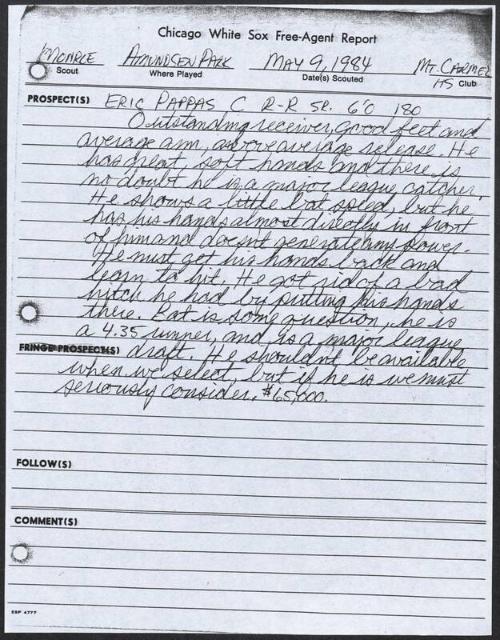 Chicago White Sox Free-Agent Report
MONROE AMUNDSEN PARK MAY 9, 1984 MT. CARMEL
Scout Where Played Date(s) Scouted HS Club
PROSPECT(S) ERIC PAPPAS C R-R SR. 6'0 180
Outstanding receiver, good feet and
average arm, above average release. He
has great, soft hands and there is
no doubt he is a major league catcher.
He shows a little bat speed, but he
has his hands almost directly in front
of him and doesn't generate any power.
He must get his hands back and
learn to hit. He got rid of a bad
hitch he had by putting his hands
there. Bat is some question, he is
a 4.35 runner, and is a major league
FRINGE PROSPECT(S) draft. He shouldn't be available
when we select, but if he is we must
seriously consider. $65,000.
FOLLOW(S)
COMMENT(S)